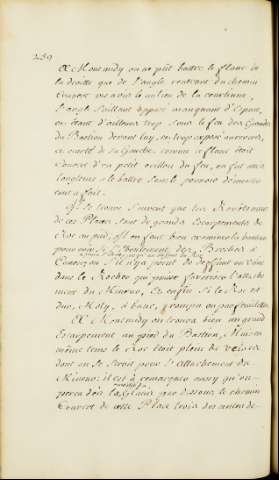 239
A Montmidy on ne put battre le flanc de
la droite que de l'angle rentrant du chemin
couvert vis avis le milieu de la courtine,
l'angle saillant opposé manquant d'Espace,
ou étant d'ailleurs trop sous le feu des
du Bastion devant luy, ou trop exposé aux revers,
et celuy de la Gauche, comme ce flanc était
couvert d'un petit orillon du feu, on fut
longtems à le battre sans le pouvoir démonter
tout à fait.
Il se trouve souvent que les Revetemens
de ces Places sont de grands Escarpements de
Roc au pied, il en faut bien examiner la hauteur
pour voir si l'Eboulement des Breches
Couvrir, s'il n'y a point de deffaut ou Veine
dans le Rocher qui puisse favoriser l'attache-
ment du Mineur, Et enfin Si le Roc est
dur, Moly, à banc, grumps ou par feuillets
A Montmidy on trouva bien un grand
Escarpement au pied du Bastion, Mais en
même tems le Roc étoit plein de Veines
dont on se servit pour l'attachement du
Mineur: il est à remarquer aussy qu'on
perça dès la Glacis par dessous le chemin
Couvert de cette Place trois descentes de